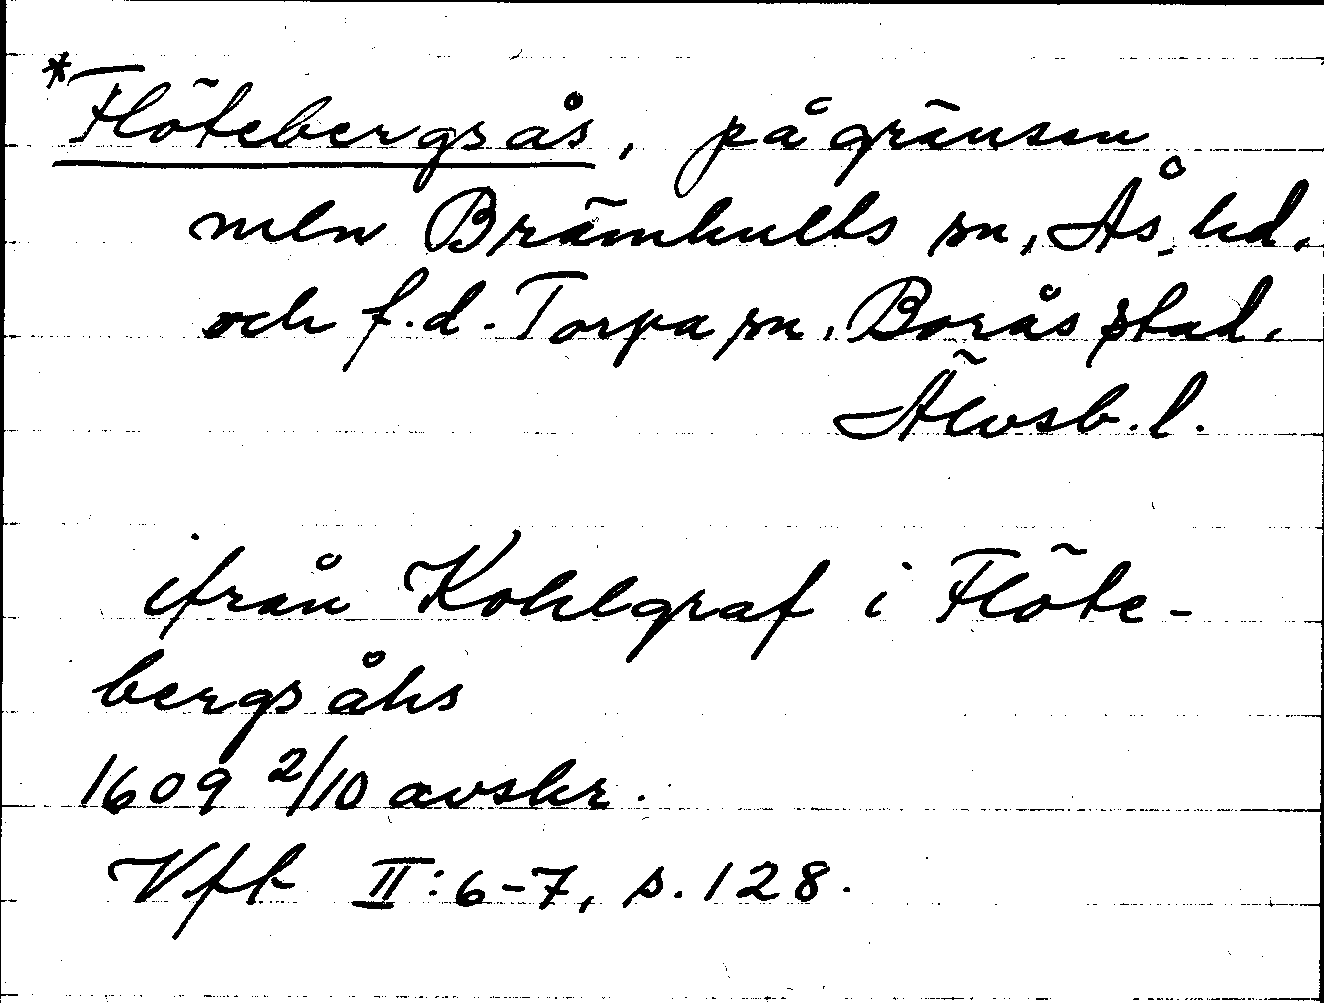 *Flötebergsås, på gränsen
meln Brämhults sn, Ås hd.
och f.d. Torpa sn, Borås stad.
Älvsb. l.
ifrån Kohlgraf i Flöte-
bergs åhs
1609 2/10 avskr.
Vft II:6-7, s. 128.